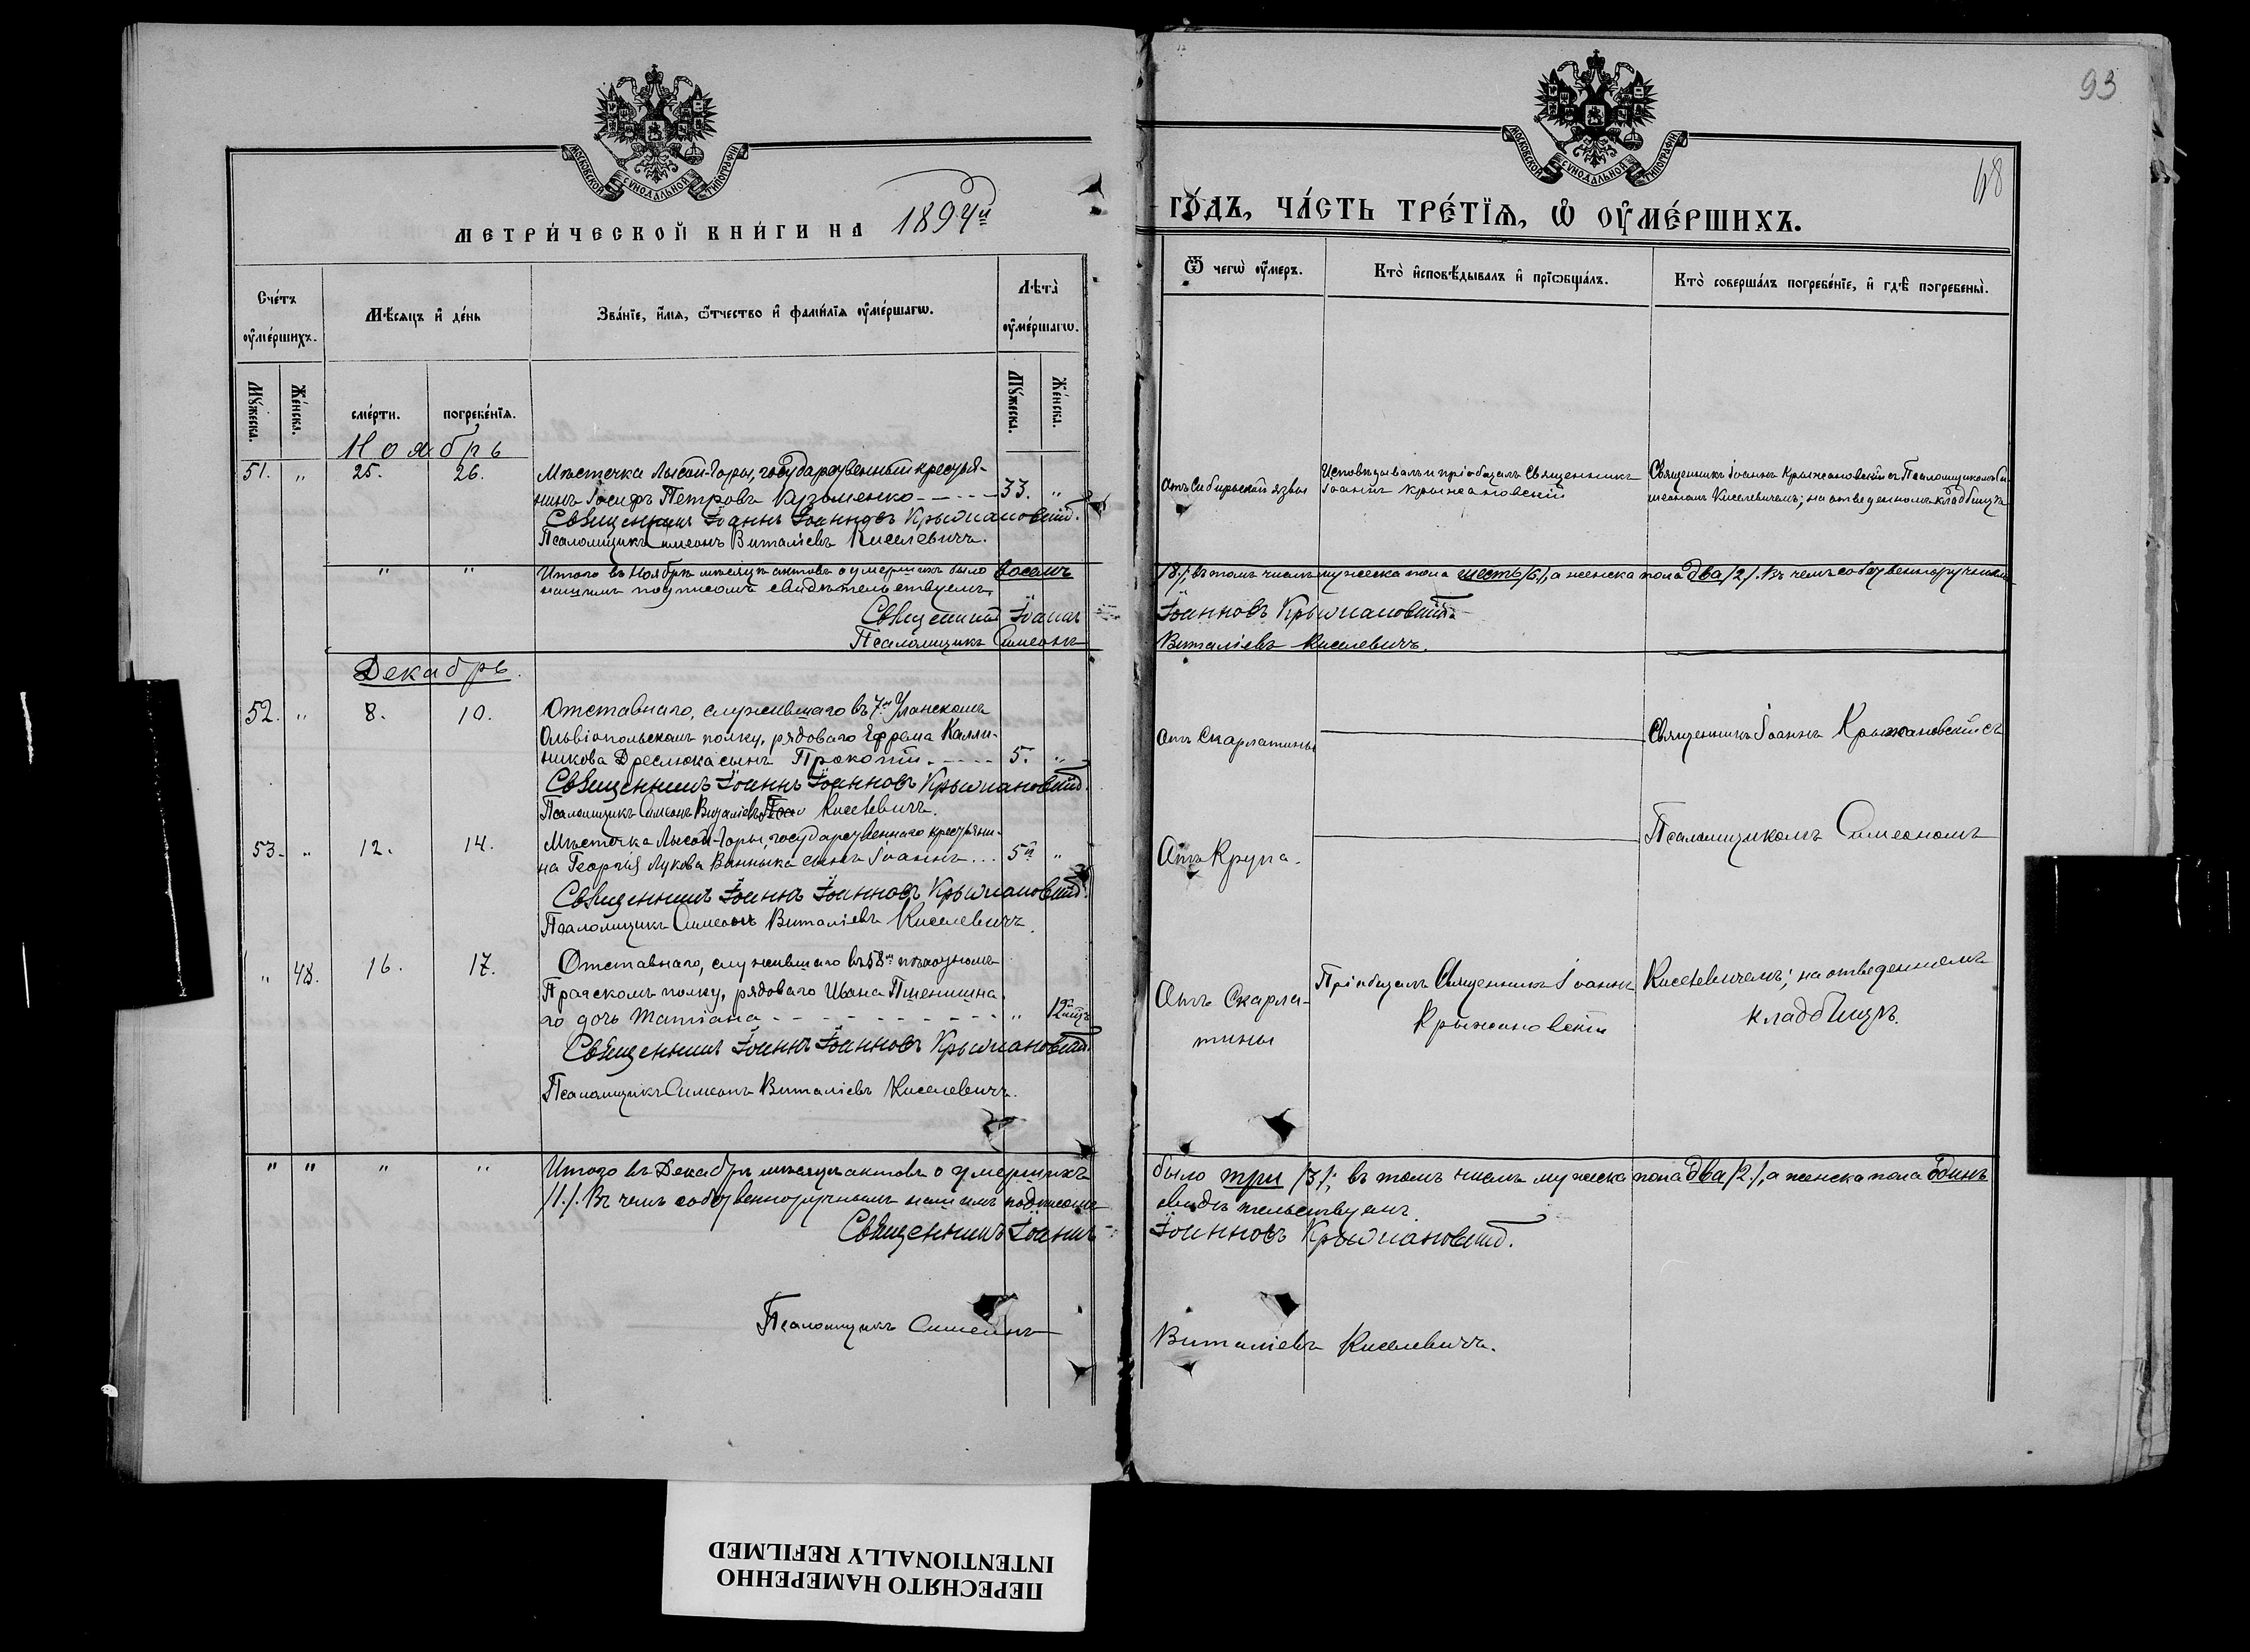 93
68
МОСКОВСКОЙ СѴНОДАЛЬНОЙ ТИПОГРАФІИ
МОСКОВСКОЙ СѴНОДАЛЬНОЙ ТИПОГРАФІИ
МЕТРИ́ЧЕСКОЙ КНИ́ГИ НА 1894й
ГО́ДЪ, ЧА́СТЬ ТРЕ́ТІѦ, Ѡ ОУ҆МЕ́РШИХЪ.
Сче́тъ оу҆ме́ршихъ.
Мѣ́сяцъ и҆ де́нь
Зва́ніе, и҆́мя, ѻ҆́тчество и҆ фами́лія оу҆ме́ршагѡ.
Лѣта̀ оу҆ме́ршагѡ.
Ѿ чегѡ̀ оу҆́меръ.
Кто̀ и҆сповѣ́дывалъ и҆ прїѡбща́лъ.
Кто̀ соверша́лъ погребе́ніе, и҆ гдѣ̀ погребены̀.
Му́жеска.
Же́нска.
сме́рти.
погребе́нїя.
Му́жеска.
Же́нска.
Ноябрь
51. " 25. 26. Мѣстечка Лысой-Горы, государственный крестья-
нинъ Іосифъ Петровъ Кузьменко - - - - 33. "
Священникъ Іоаннъ Іоанновъ Крыжановскій.
Псаломщикъ Симеонъ Виталіевъ Киселевичъ.
Отъ Сибирской язвы
Исповѣдывалъ и пріобщалъ Священникъ
Іоаннъ Крыжановскій
Священникъ Іоаннъ Крыжановскій съ Псаломщикомъ Си-
меономъ Киселевичемъ; на отведенномъ кладбищѣ
" " Итого въ Ноябрѣ мѣсяцѣ актовъ о умершихъ было восемь
/8./; въ томъ числѣ мужеска пола шесть /6./, а женска пола два /2./. Въ чемъ собственноручнымъ
нашимъ подписомъ свидѣтельствуемъ.
Священникъ Іоаннъ
Іоанновъ Крыжановскій
Псаломщикъ Симеонъ
Виталіевъ Киселевичъ.
Декабрь.
52. " 8. 10. Отставнаго, служившаго въ 7м Уланскомъ
Ольвіопольскомъ полку, рядоваго Ефрема Калли-
никова Дреслюка сынъ Прокопій. - - - - 5. "
Священникъ Іоаннъ Іоанновъ Крыжановскій.
Псаломщикъ Симеонъ Виталіевъ Киселевичъ.
Отъ Скарлатины
Священникъ Іоаннъ Крыжановскій съ
53. " 12. 14. Мѣстечка Лысой-Горы, государственнаго крестьяни-
на Георгія Лукова Винныка сынъ Іоаннъ... 5й "
Священникъ Іоаннъ Іоанновъ Крыжановскій.
Псаломщикъ Симеонъ Виталіевъ Киселевичъ.
Отъ Крупа.
Псаломщикомъ Симеономъ
" 48. 16. 17. Отставнаго, служившаго въ 58м пѣхотномъ
Прагскомъ полку, рядоваго Ивана Пшенишна-
го дочь Татіана - - - - - - - - - - " 12
Священникъ Іоаннъ Іоанновъ Крыжановскій.
Псаломщикъ Симеонъ Виталіевъ Киселевичъ.
Отъ Скарла-
тины
Пріобщалъ Священникъ Іоаннъ
Крыжановскій
Киселевичемъ; на отведенномъ
кладбищѣ.
" " " " Итого въ Декабрѣ мѣсяцѣ актовъ о умершихъ
было три /3/; въ томъ числѣ мужеска пола два /2./, а женска пола одинъ
/1./. Въ чемъ собственноручнымъ нашимъ подписомъ
свидѣтельствуемъ.
Священникъ Іоаннъ
Іоанновъ Крыжановскій.
Псаломщикъ Симеонъ
Виталіевъ Киселевичъ.
ПЕРЕСНЯТО НАМЕРЕННО
INTENTIONALLY REFILMED